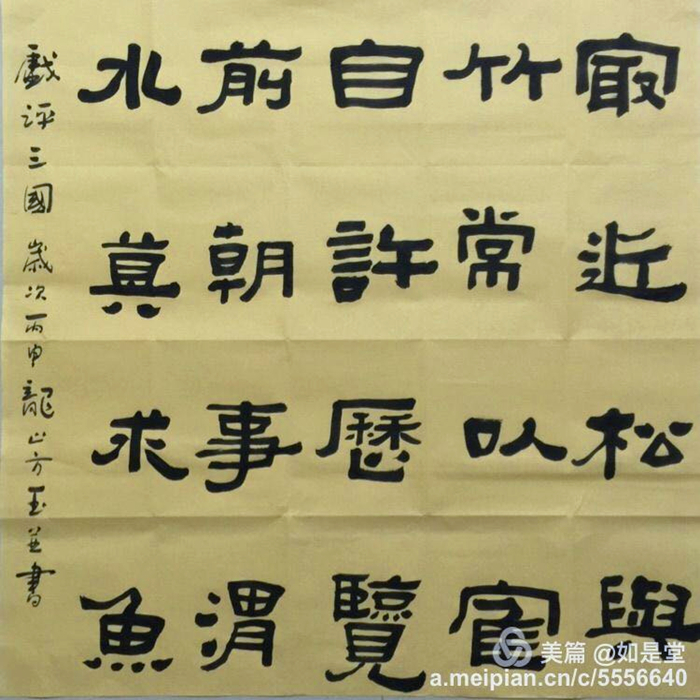 冣近松與
竹常以寉
自許歷覽
前朝事渭
水求魚
戲評三國 歲次丙申龍山方玉並書
美篇 @如是堂
a.meipian.cn/c/5556640